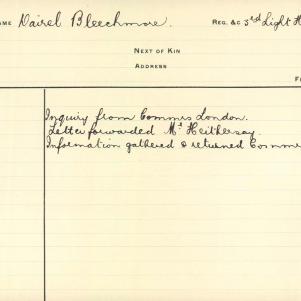 NAME Nairel Bleechmore. REG. &C 3rd Light H
NEXT OF KIN
ADDRESS
F
Inquiry from Commrs London.
Letter forwarded Mr Heithersay.
Information gathered & returned Comm